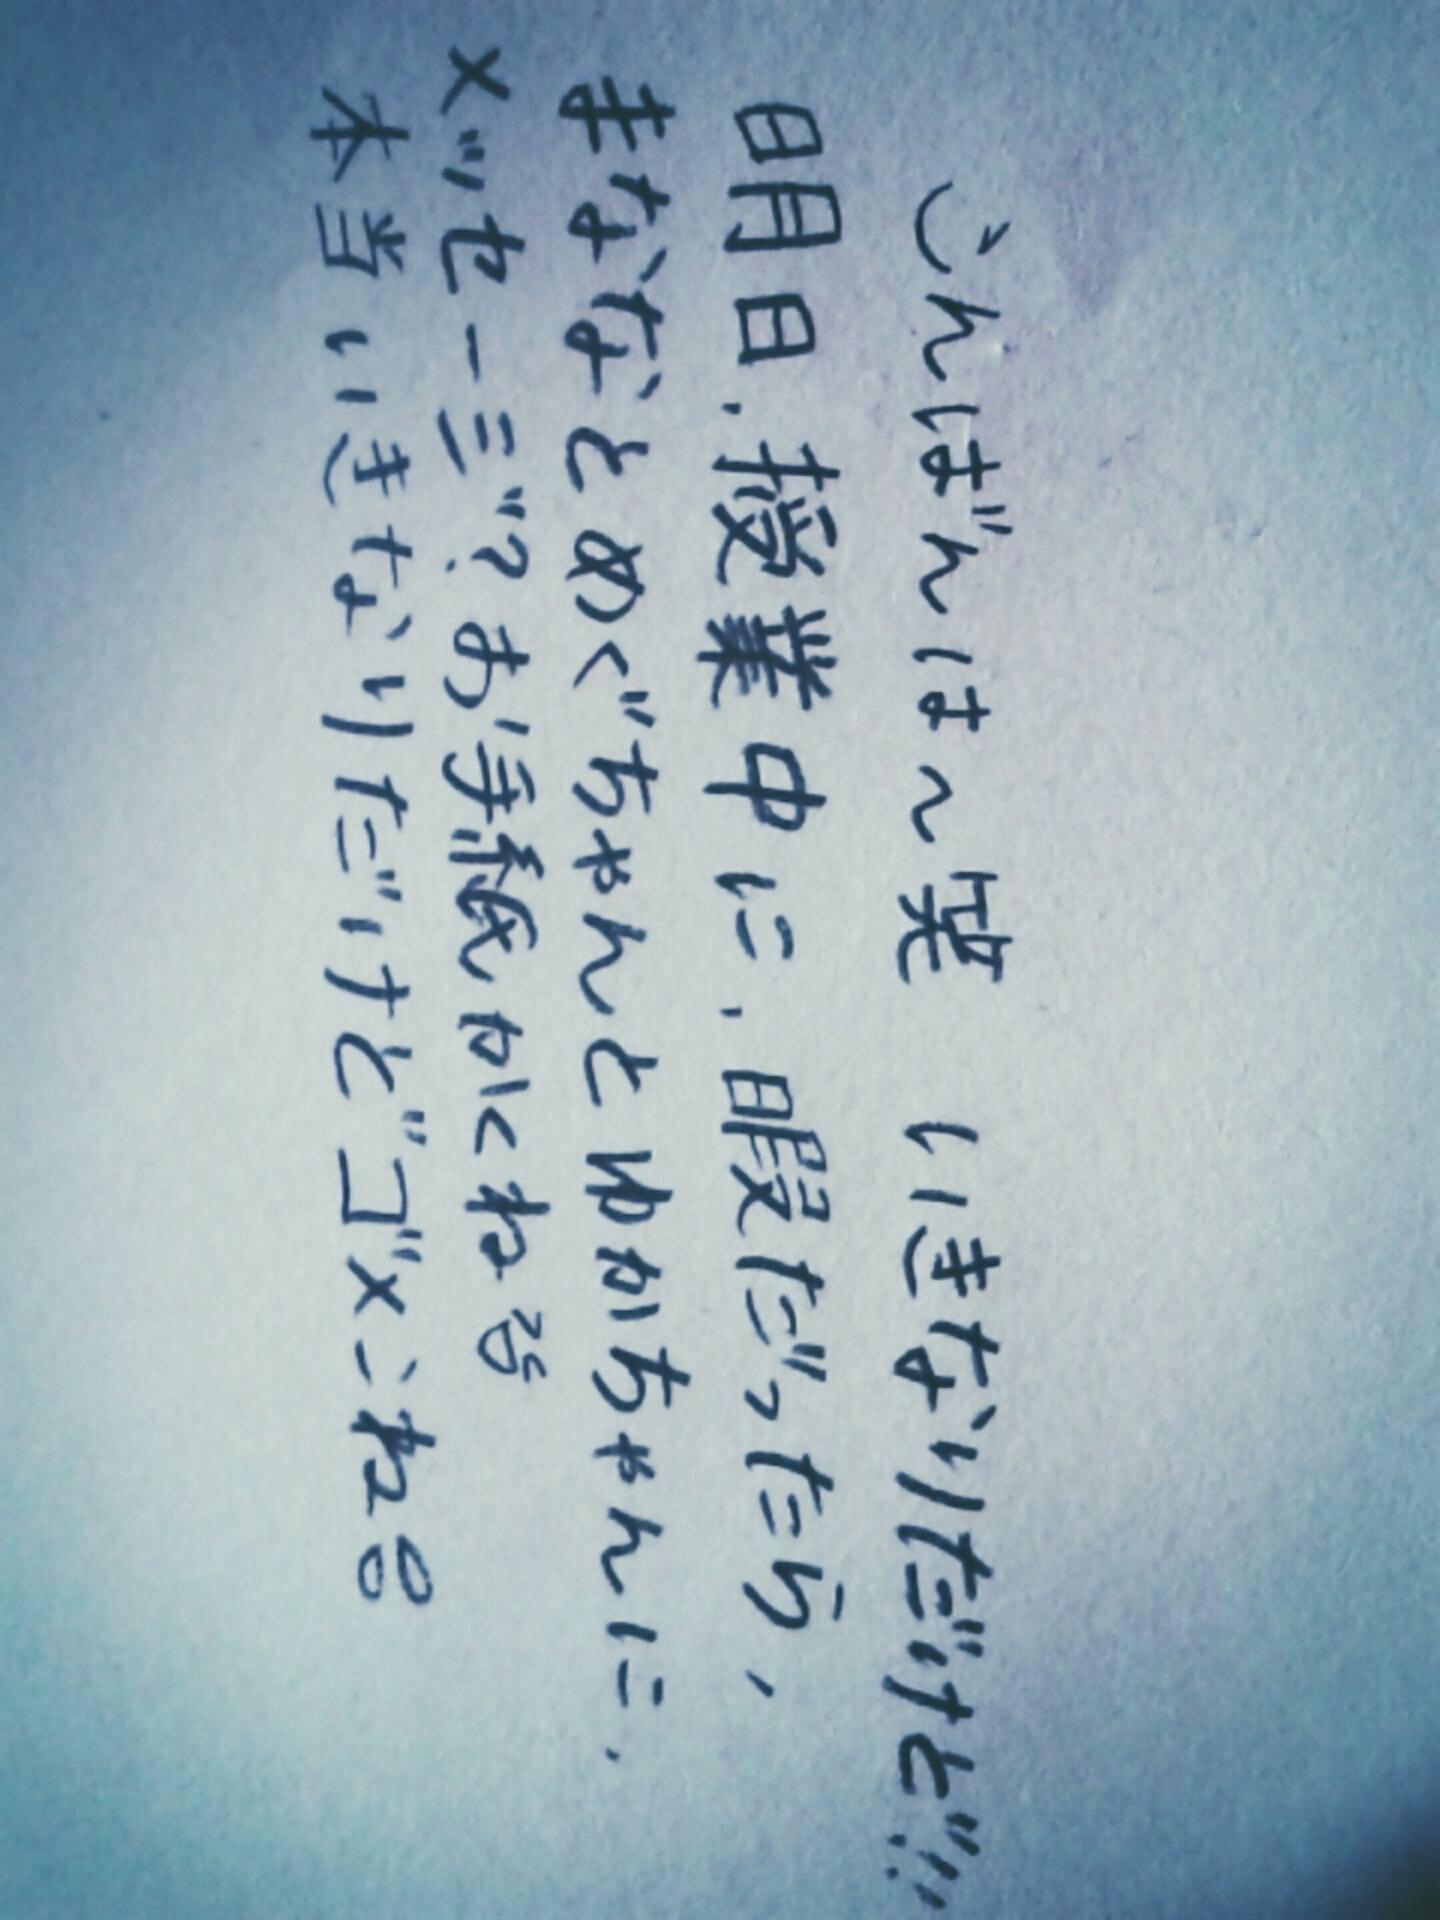 こんばんは～笑 いきなりだけど!!
明日、授業中に、暇だったら、
まななとめぐちゃんとゆかちゃんに、
メッセージ?お手紙かくねმ
本当いきなりだけどゴメンね。